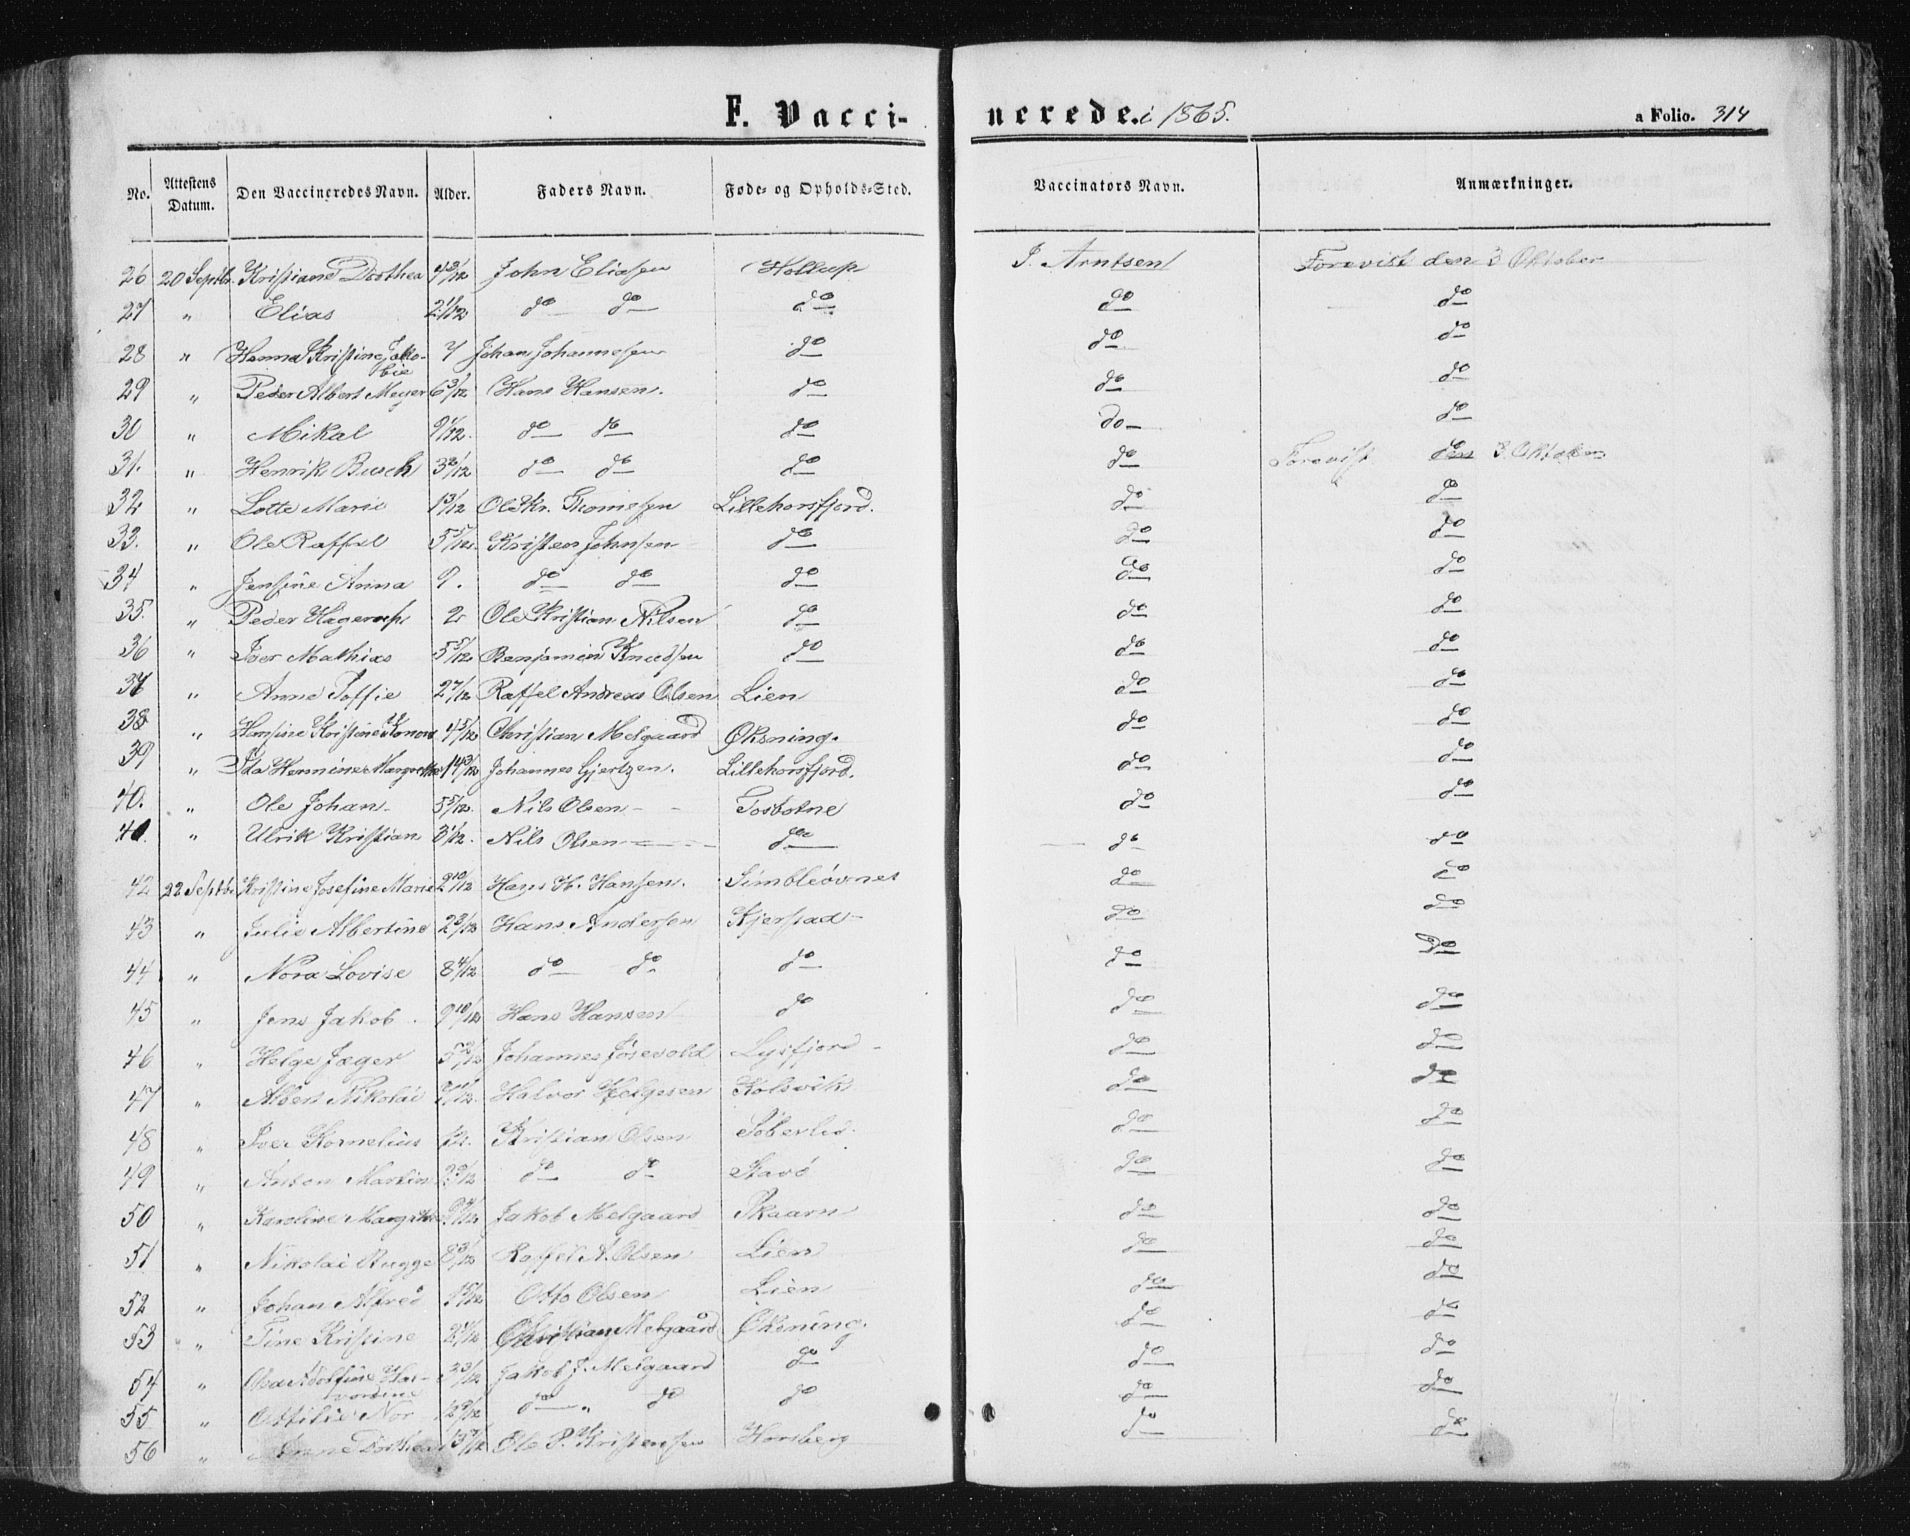 F. Vaccinerede. i 1865. a Folio. 314
No. Attestens Datum. Den Vaccineredes Navn. Alder. Faders Navn. Føde- og Opholds-Sted. Vaccinators Navn. Anmærkninger.
26 20 Septbr. Kristiane Dorthea John Eliasen Hollup J. Arntsen Forevist den 3 Oktober
27 " Elias 2 1/12 do do do do do
28 " Hanna Kristine Jako- 7 Johan Johannesen do do do
bie
29 " Peder Albert Meyer 6 3/12 Hans Hansen. do do do
30 " Mikal do do do do do
31. " Henrik Busch do do do do Forevist den 3 Oktober
32 " Lotte Marie Ole Kr. Tomesen Lillehorsfjord. do do
33. " Ole Raffel Kristen Johnsen do do do
34 " Jensine Anna 9. do do do do do
35. " Peder Hagerup 2 Ole Kristian Nilsen do do do
36 " Iver Mathias 5 5/12 Benjamin Knudsen do do do
37 " Anne Toffie 2 7/12 Raffel Andreas Olsen Lien do do
38 " Hansine Kristine 4 5/12 Christian Melgaard Øksning. do do
39 " Ida Hermine Margrethe Johannes Gjertzen. Lillehorsfjord. do do
40. " Ole Johan 5/12. Nils Olsen Tosbotne do do
40. " Ulrik Kristian 3 1/12. Nils Olsen do do do
42 22 Septbr Kristine Josefine Marie 2 10/12 Hans H. Hansen. do do
43 " Julie Albertine Hans Andersen Kjerstad do do
44 " Nora Lovise 8 4/12 do do do do Do
45 " Jens Jakob 9 10/12 Hans Hansen do do do
46 " Helge Jæger Johannes Josevold Lysfjord do do
47 " Albert Nikolai Halvor Helgesen Kolsvik do do
48 " Iver Kornelius Kristian Olsen Søberlid. do do
49 " Anton Martin do do Stavø do do
50 " Karoline Margrethe Jakob Melgaard Skaarn do do
51 " Nikolai Rugge 8 3/12 Raffel A. Olsen Lien do do
52 " Johan Alfred Otto Olsen Lien do do
53 " Tine Kristine Christian Melgaard Øksning. do do
54 " Adolfine Hal- 3 3/12 Jakob J. Melgaard do do do
vordine
55 " Ottilie Nor do " do do do do
56 " Dorthea Ole P. Kristensen Horsberg do do